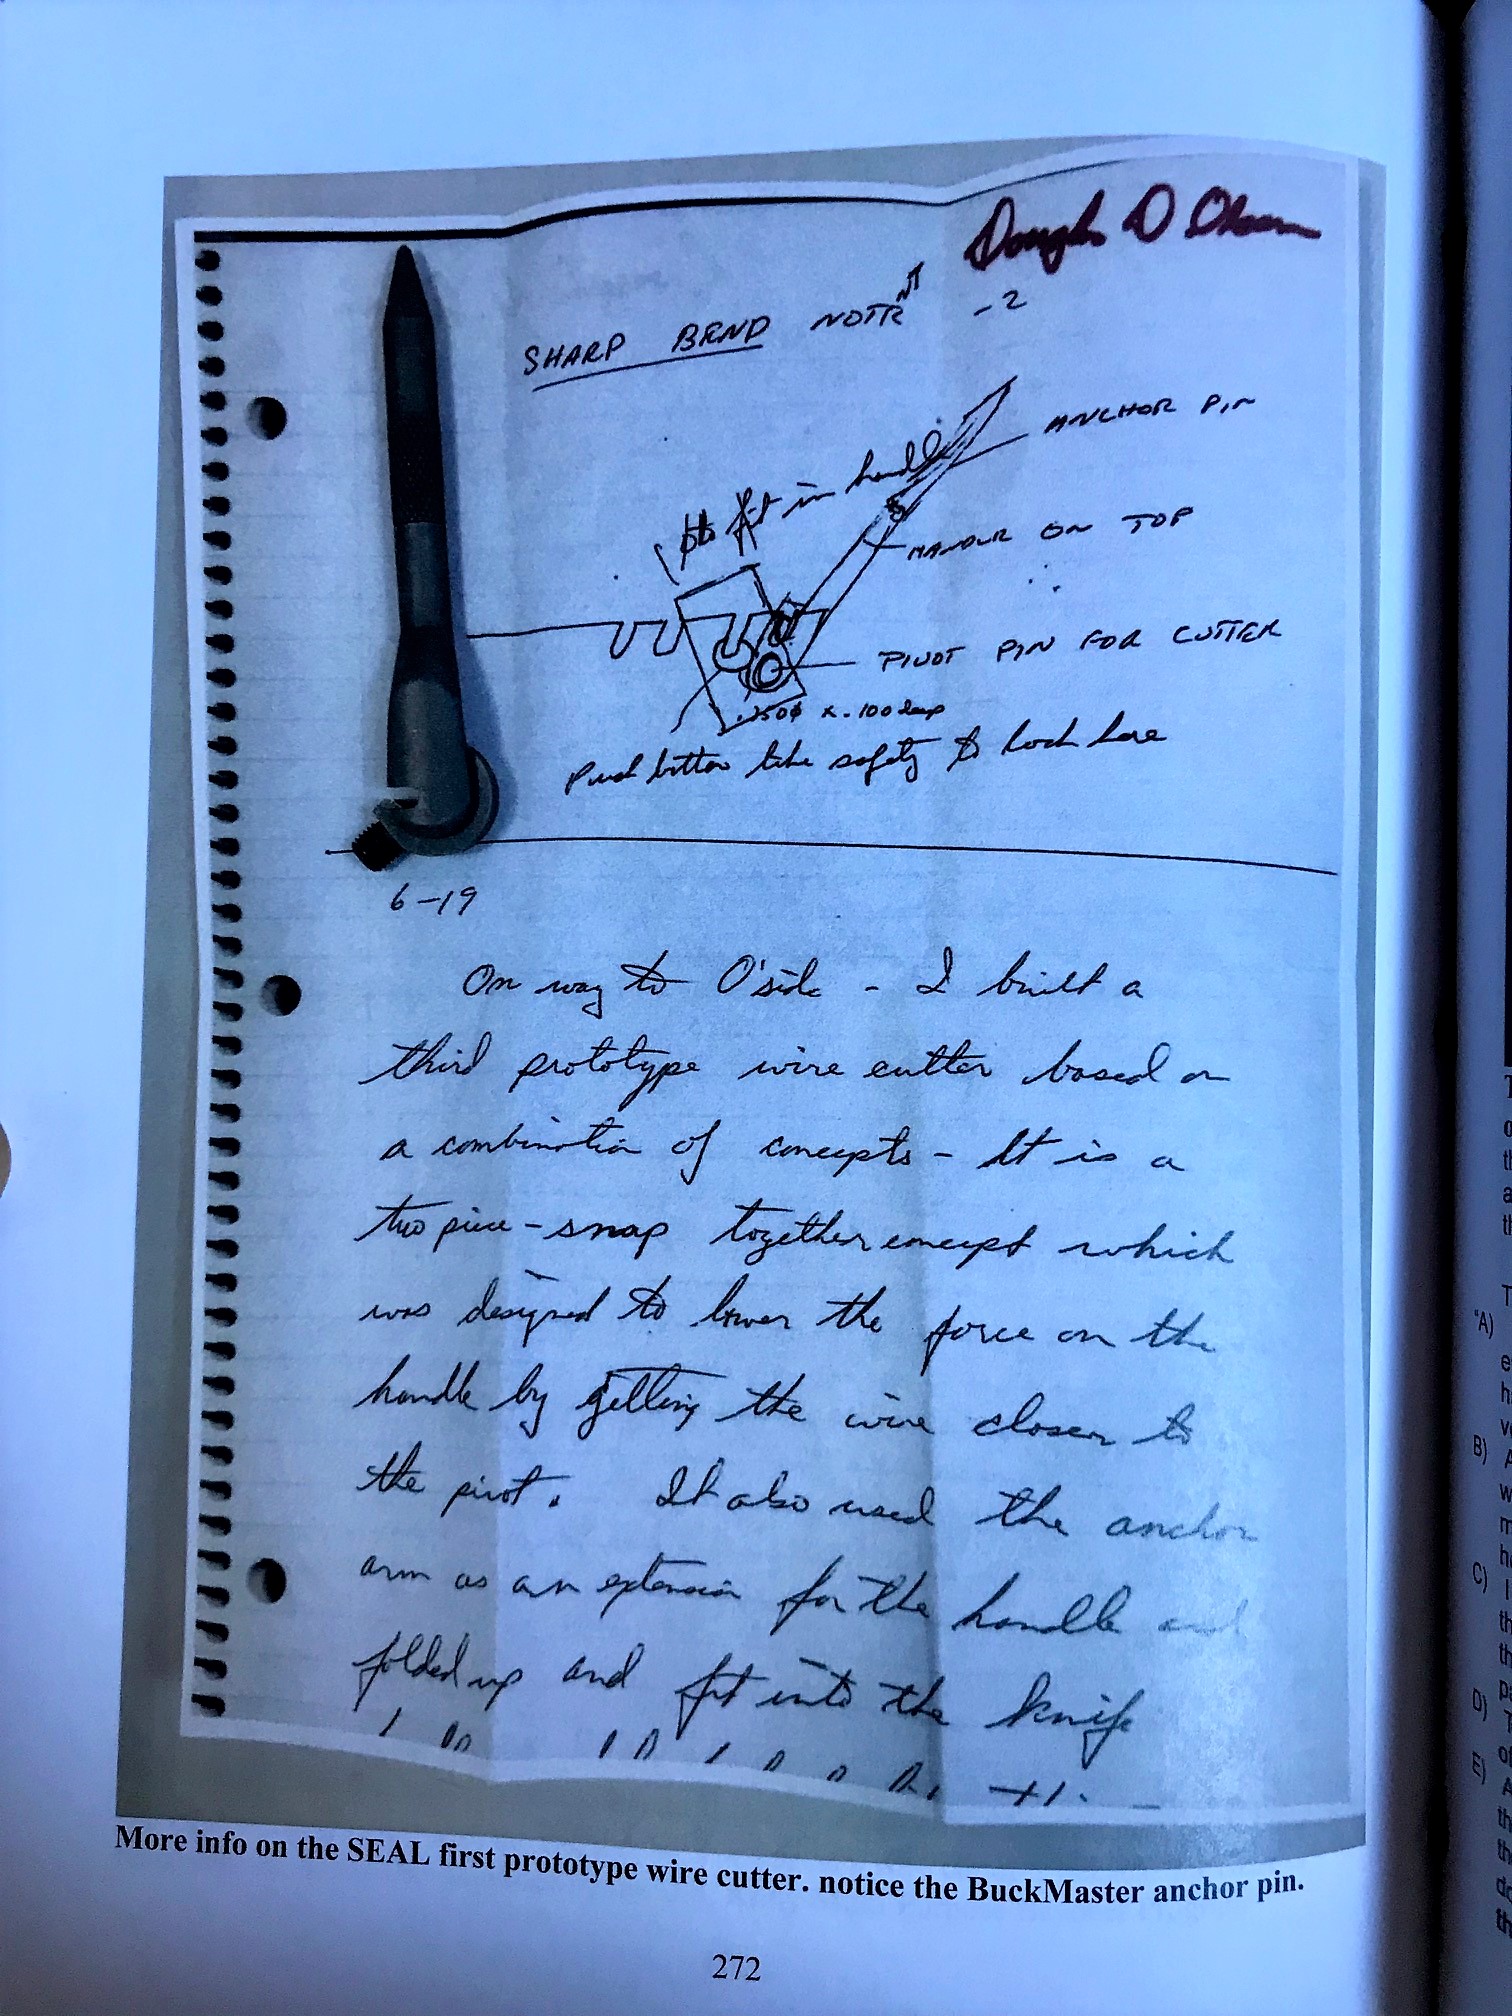 Douglas D Olson
SHARP BEND NOTE -2
ANCHOR PIN
to fit in handle
HANDLE ON TOP
PIVOT PIN FOR CUTTER
.250ϕ x .100 deep
Push button like safety to lock here
6-19
On way to O'side - I built a
third prototype wire cutter based on
a combination of concepts - It is a
two piece - snap together concept which
was designed to lower the force on the
handle by getting the wire closer to
the pivot. It also used the anchor
arm as an extension for the handle and
folded up and fit into the knife
More info on the SEAL first prototype wire cutter. notice the BuckMaster anchor pin.
272
"A)
B)
C)
D)
E)